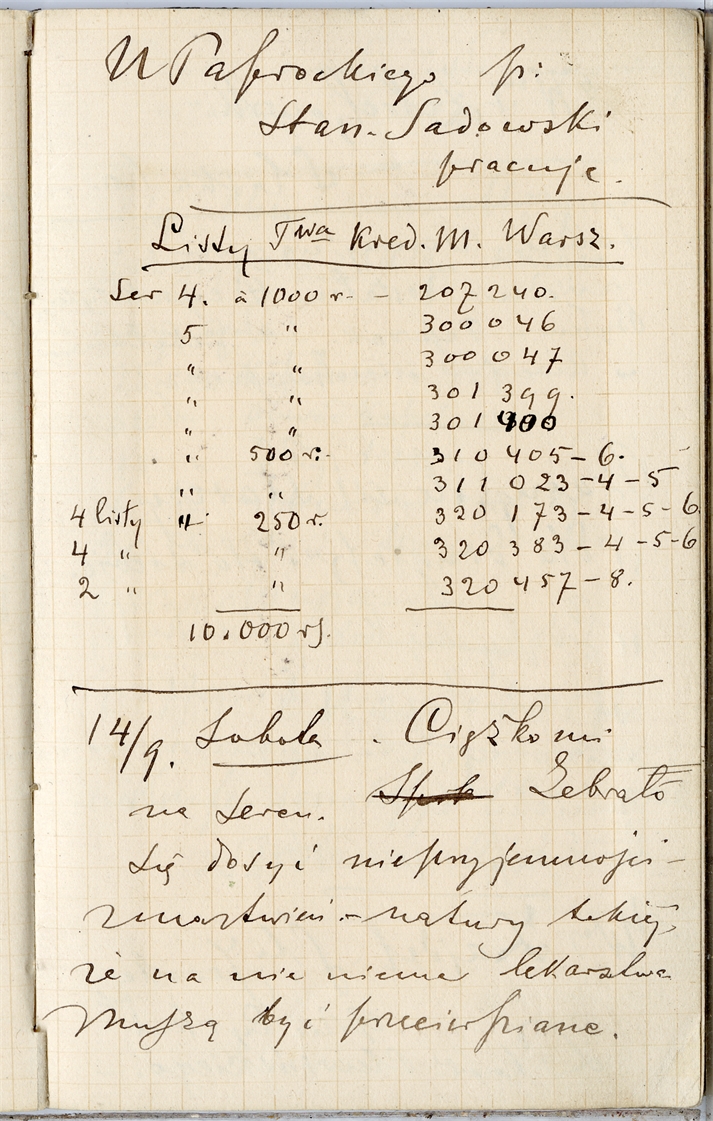 U Paprockiego p:
Stan. Sadowski
pracuje.
Listy Twa Kred. M. Warsz.
Ser 4. à 1000 r. – 207 240.
5 " 300 046
" " 300 047
" " 301 399.
" " 301 400
" 500 r: 310 405 – 6.
" " 311 023 – 4 – 5
4 listy " 250 r. 320 173 – 4 – 5 – 6.
4 " " 320 383 – 4 – 5 – 6
2 " " 320 457 – 8.
10.000 rs.
14/9. Sobota. Ciężko mi
na sercu. Zebrało
się dosyć nieprzyjemności –
zmartwień – natury takiej,
że na nie niema lekarstwa
Muszą być przecierpiane.